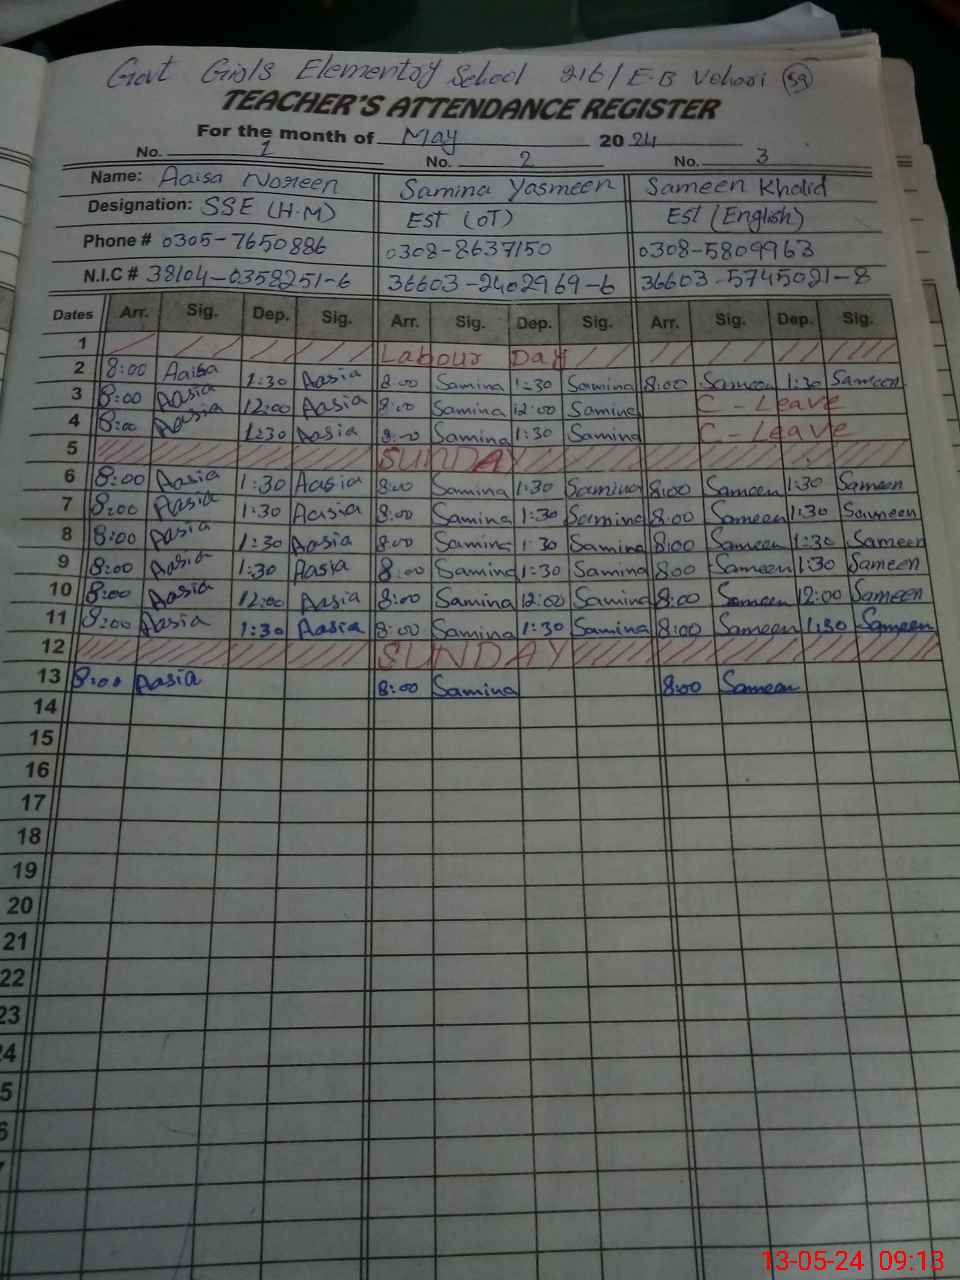 Govt Girls Elementory School 216/E-B Vehari 59
TEACHER'S ATTENDANCE REGISTER
For the month of May 2024
No. 1 No. 2 No. 3
Name: Aaisa Noreen Samina Yasmeen Sameen Khalid
Designation: SSE (H.M) Est (OT) Est (English)
Phone # 0305-7650886 0308-8637150 0308-5809963
N.I.C # 38104-0358251-6 36603-2402969-6 36603-5745021-8
Dates Arr. Sig. Dep. Sig. Arr. Sig. Dep. Sig. Arr. Sig. Dep. Sig.
1 Labour Day
2 8:00 Aaisa 1:30 Aasia 8:00 Samina 1:30 Samina 8:00 Sameen 1:30 Sameen
3 8:00 Aasia 12:00 Aasia 8:00 Samina 12:00 Samina C-Leave
4 8:00 Aasia 1:30 Aasia 8:00 Samina 1:30 Samina C-Leave
5 SUNDAY
6 8:00 Aasia 1:30 Aasia 8:00 Samina 1:30 Samina 8:00 Sameen 1:30 Sameen
7 8:00 Aasia 1:30 Aasia 8:00 Samina 1:30 Samina 8:00 Sameen 1:30 Sameen
8 8:00 Aasia 1:30 Aasia 8:00 Samina 1:30 Samina 8:00 Sameen 1:30 Sameen
9 8:00 Aasia 1:30 Aasia 8:00 Samina 1:30 Samina 8:00 Sameen 1:30 Sameen
10 8:00 Aasia 12:00 Aasia 8:00 Samina 12:00 Samina 8:00 Sameen 12:00 Sameen
11 8:00 Aasia 1:30 Aasia 8:00 Samina 1:30 Samina 8:00 Sameen 1:30 Sameen
12 SUNDAY
13 8:00 Aasia 8:00 Samina 8:00 Sameen
14
15
16
17
18
19
20
21
22
23
4
5
6
7
13-05-24 09:13